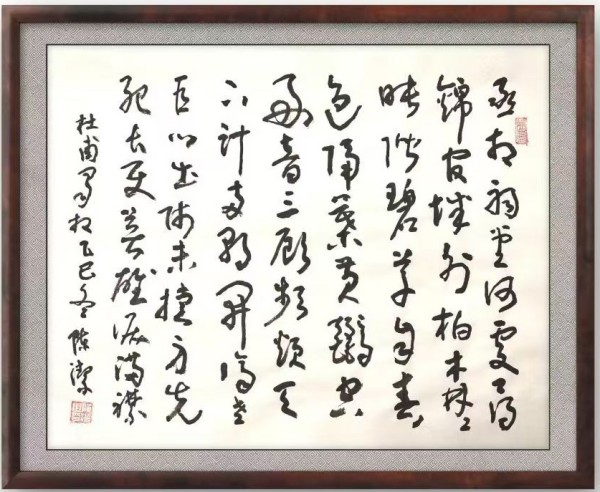 丞相祠堂何處尋
錦官城外柏森々
映階碧草自春
色隔葉黃鸝空
好音三顧頻煩天
下計兩朝開濟老
臣心出師未捷身先
死長使英雄淚滿襟
杜甫蜀相乙巳冬 陳潔